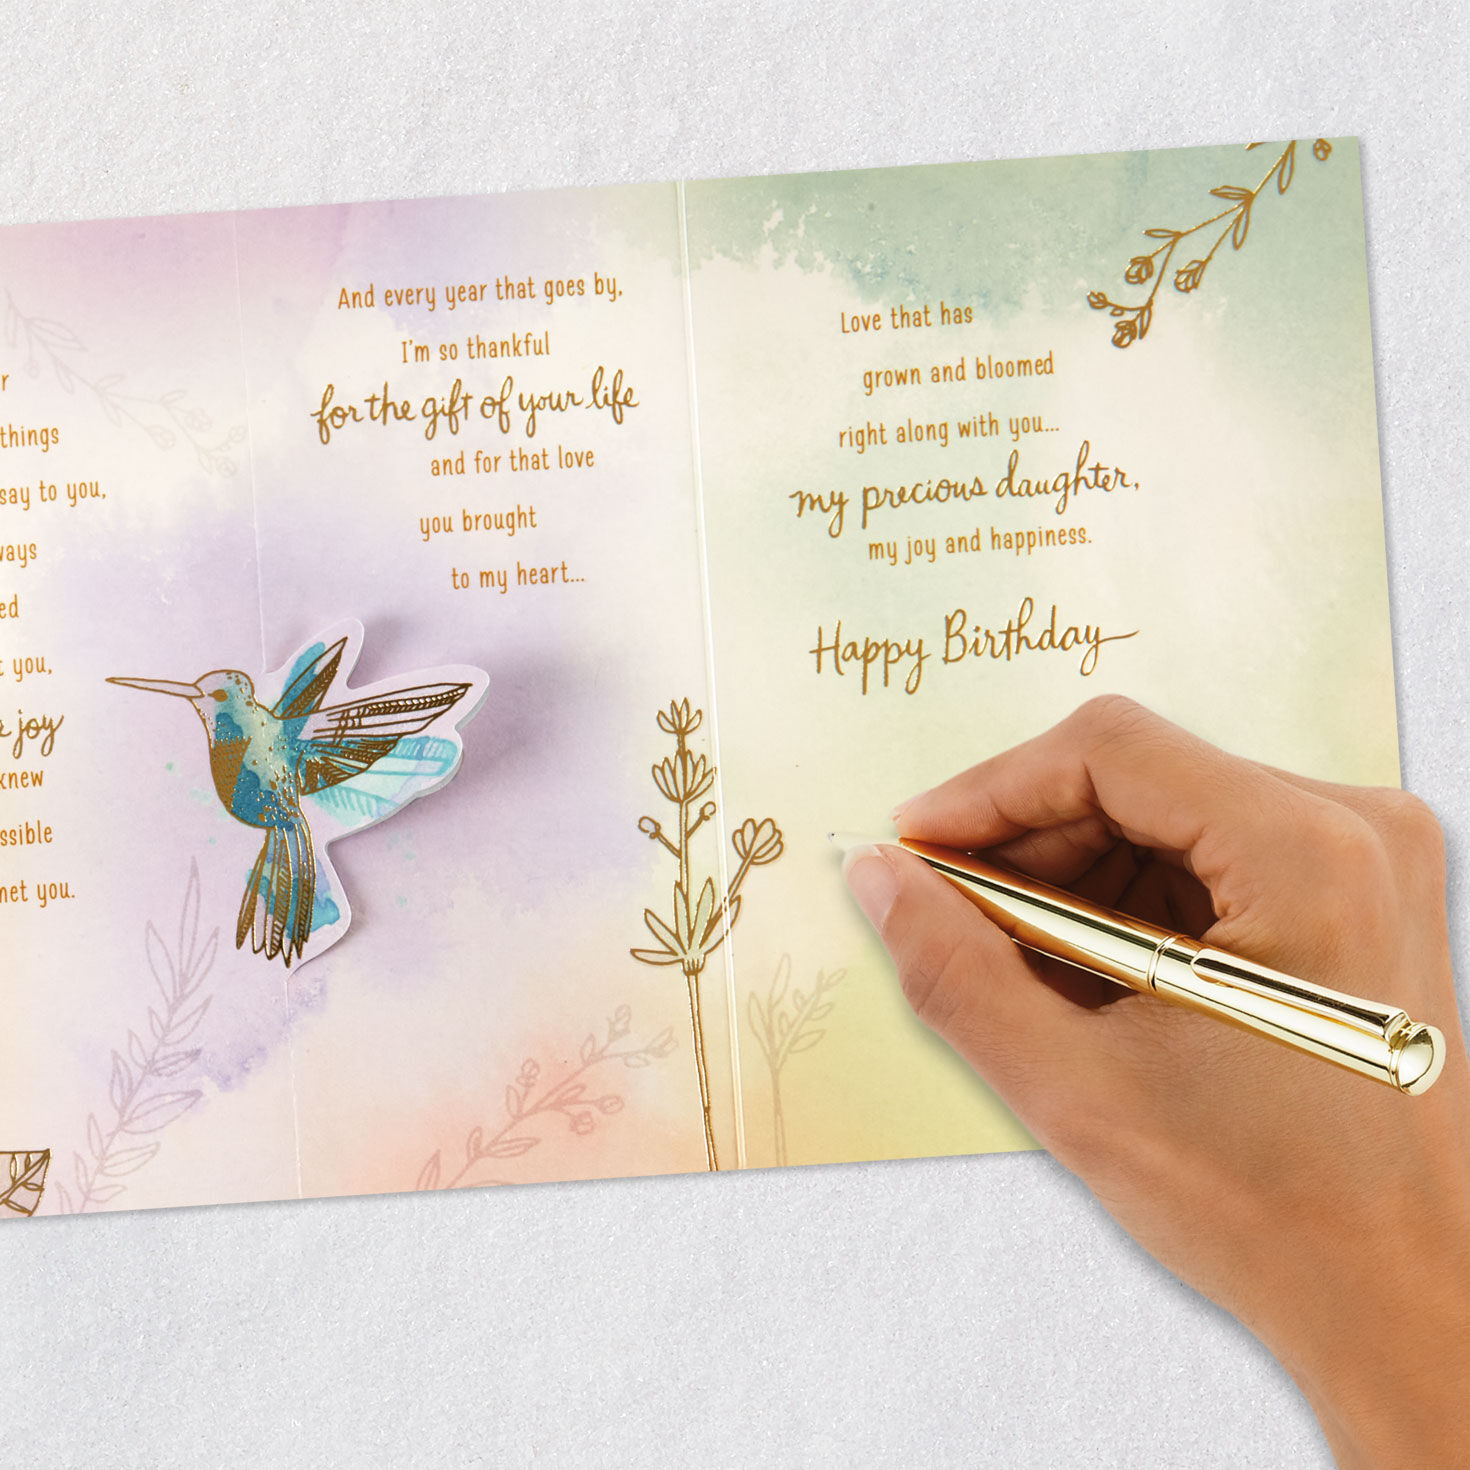 things
say to you,
you,
joy
knew
you.
And every year that goes by,
I'm so thankful
for the gift of your life
and for that love
you brought
to my heart...
Love that has
grown and bloomed
right along with you...
my precious daughter,
my joy and happiness.
Happy Birthday